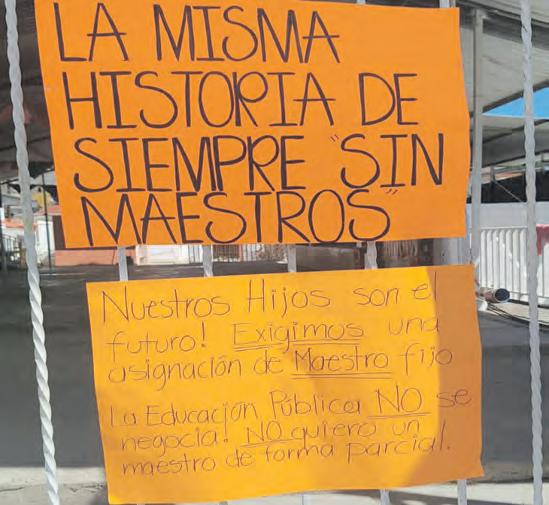 LA MISMA
HISTORIA DE
SIEMPRE "SIN
MAESTROS"
Nuestros Hijos son el
futuro! Exigimos una
asignación de Maestro fijo
La Educación Pública NO se
negocia! NO quiero un
maestro de forma parcial.